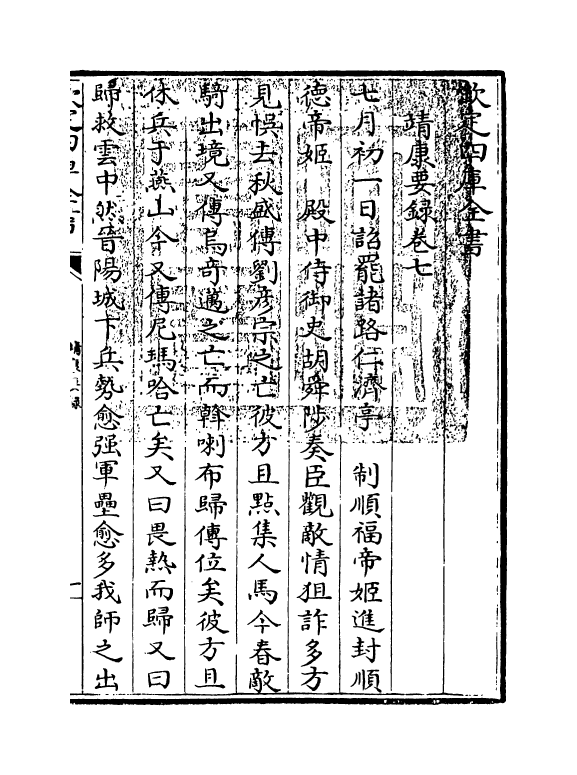 欽定四庫全書
靖康要録卷七
七月初一日詔罷諸路仁濟亭　制順福帝姬進封順
徳帝姬　殿中侍御史胡舜陟奏臣觀敵情狙詐多方
見悞去秋盛傳劉彦宗之亡彼方且點集人馬今春敵
騎出境又傳烏奇邁之亡而斡喇布歸傳位矣彼方且
休兵于燕山今又傳尼瑪哈亡矣又曰畏熱而歸又曰
歸救雲中然晉陽城下兵勢愈强軍壘愈多我師之出
欽定四庫全書
靖康要録
一